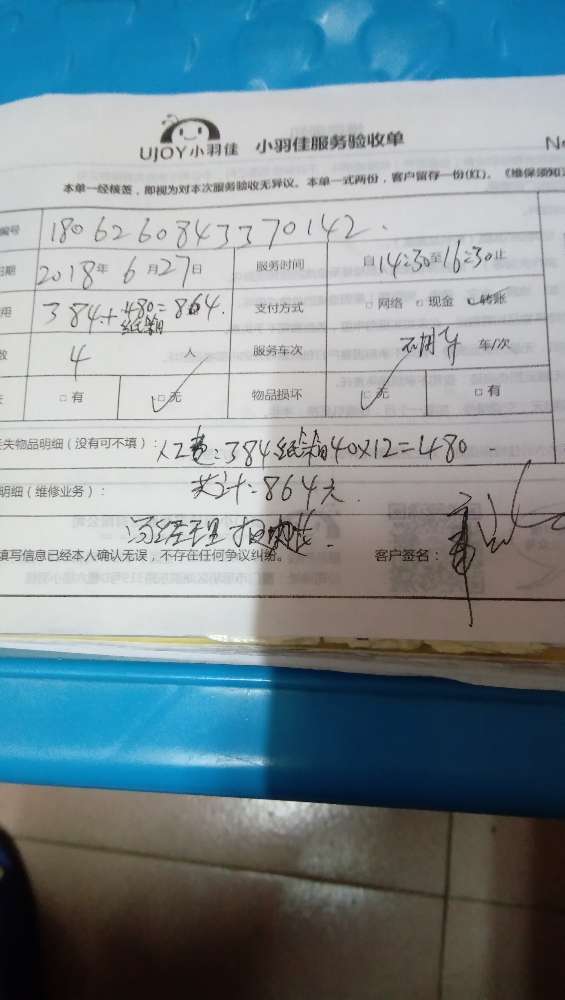 UJOY小羽佳 小羽佳服务验收单 N
本单一经核签，即视为对本次服务验收无异议。本单一式两份，客户留存一份(红)。《维保须知
编号 180626084337 0142
日期 2018年6月27日 服务时间 自14:30至16:30止
用 384+480=864 支付方式 □网络 □现金 □转账
纸箱
数 4 人 服务车次 不用车 车/次
□有 □无 物品损坏 □无 □有
失物品明细（没有可不填）：人工费：384 纸箱40×12=480
明细（维修业务）： 共计：864元
冯经理
填写信息已经本人确认无误，不存在任何争议纠纷。 客户签名：